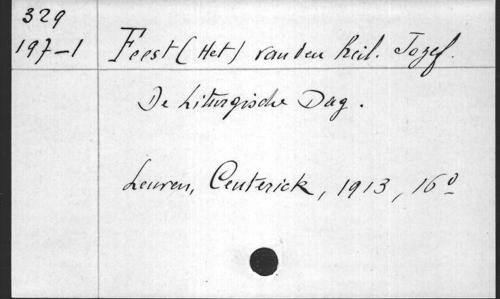 329
197-1
Feest (Het) van den heil. Jozef.
De Liturgische Dag.
Leuven, Ceuterick, 1913, 16°